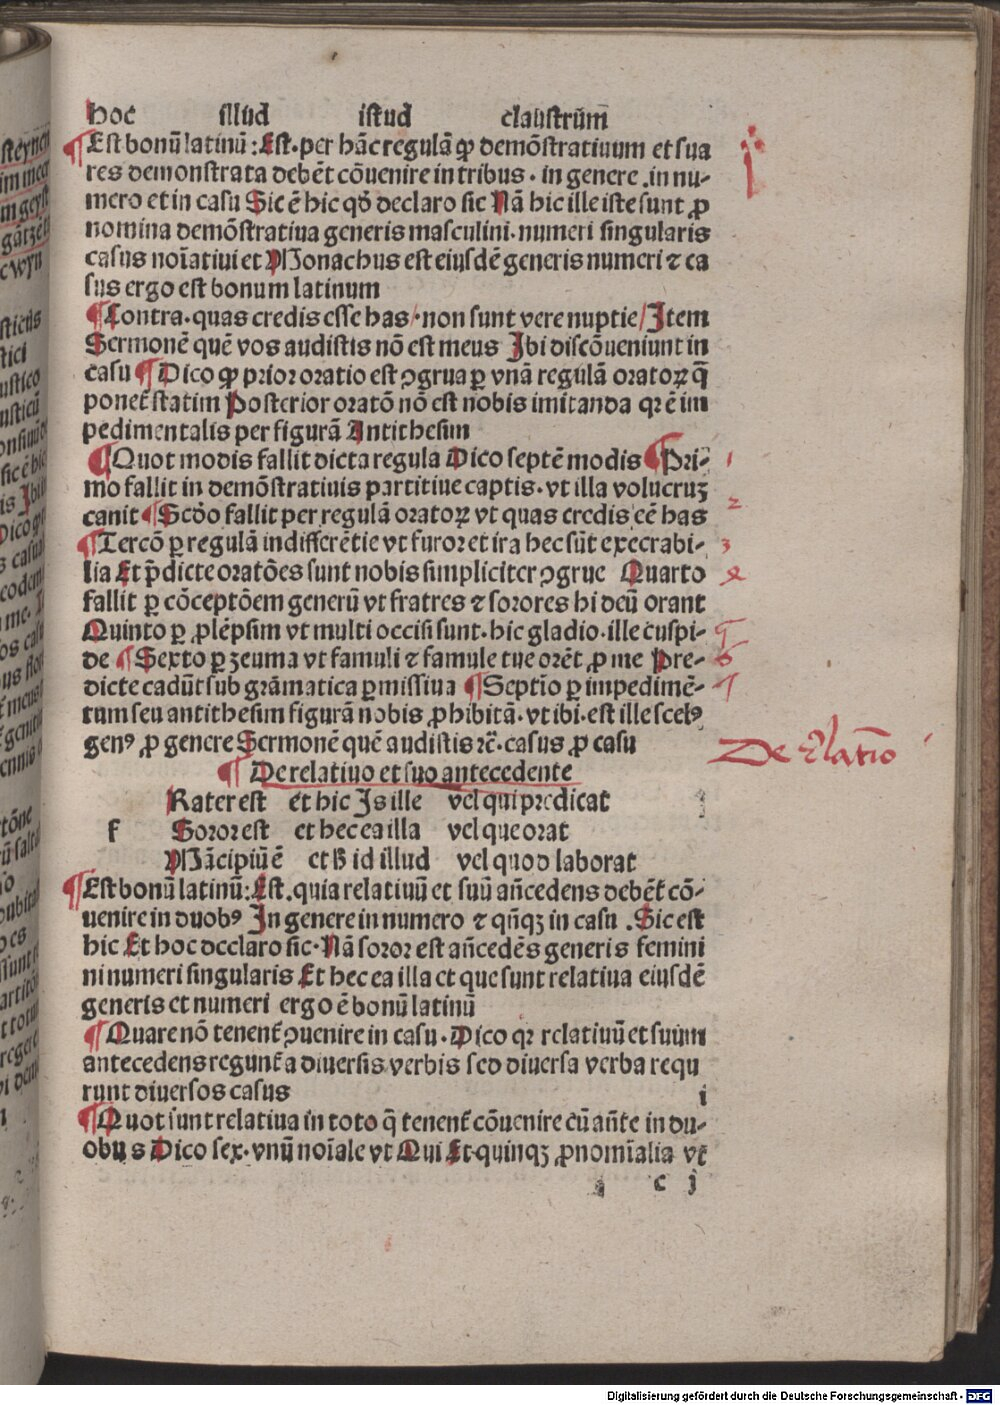 hoc illud istud claustrūm
¶ Est bonū latinū: Est. per hāc regulā ꝙ demōstratiuum et sua
res demonstrata debēt cōuenire in tribus. in genere .in nu-
mero et in casu Sic ē hic qđ declaro sic Nā hic ille iste sunt ꝓ
nomina demōstratiua generis masculini. numeri singularis
casus noīatiui et Monachus est eiusdē generis numeri ⁊ ca
sus ergo est bonum latinum
¶ Contra. quas credis esse has/ non sunt vere nuptie/ Item
Sermonē quē vos audistis nō est meus Ibi discōueniunt in
casu ¶ Dico ꝙ prior oratio est ꝯgrua ꝑ vnā regulā oratoꝝ q̄
ponet̄ statim Posterior oratō nō est nobis imitanda qꝛ ē im
pedimentalis per figurā Antithesim
¶ Quot modis fallit dicta regula Dico septē modis ¶ Pri-
mo fallit in demōstratiuis partitiue captis. vt illa volucruꝫ
canit ¶ Scđo fallit per regulā oratoꝝ vt quas credis eē has
¶ Tercō ꝑ regulā indifferētie vt furor et ira hec sūt execrabi-
lia Et p̄dicte oratōes sunt nobis simpliciter ꝯgrue Quarto
fallit ꝑ cōceptōem generū vt fratres ⁊ sorores hi deū orant
Quinto ꝑ ꝓlēpsim vt multi occisi sunt. hic gladio. ille cuspi-
de ¶ Sexto ꝑ zeuma vt famuli ⁊ famule tue orēt ꝓ me Pre-
dicte cadūt sub grāmatica ꝑmissiua ¶ Septīo ꝑ impedimē-
tum seu antithesim figurā nobis ꝓhibitā. vt ibi. est ille scelꝰ
genꝰ ꝓ genere Sermonē quē audistis ꝛc̄. casus ꝓ casu
¶ De relatiuo et suo antecedente
Frater est et hic Is ille vel qui predicat
f Soror est et hec ea illa vel que orat
Mācipiū ē et ħ id illud vel quod laborat
¶ Est bonū latinū: Est. quia relatiuū et suū an̄cedens debēt cō-
uenire in duobꝰ In genere in numero ⁊ qn̄qꝫ in casu . Sic est
hic Et hoc declaro sic. Nā soror est an̄cedēs generis femini
ni numeri singularis Et hec ea illa et que sunt relatiua eiusdē
generis et numeri ergo ē bonū latinū
¶ Quare nō tenent̄ ꝯuenire in casu. Dico qꝛ relatiuū et suum
antecedens regunt̄ a diuersis verbis sed diuersa verba requ
runt diuersos casus i
¶ Quot sunt relatiua in toto q̄ tenent̄ cōuenire cū an̄te in du-
obus Dico sex. vnū noīale vt Qui Et quinqꝫ ꝓnomīalia vt
c j
1
2
3
4
5
6
7
De Relatiuo
Digitalisierung gefördert durch die Deutsche Forschungsgemeinschaft - DFG